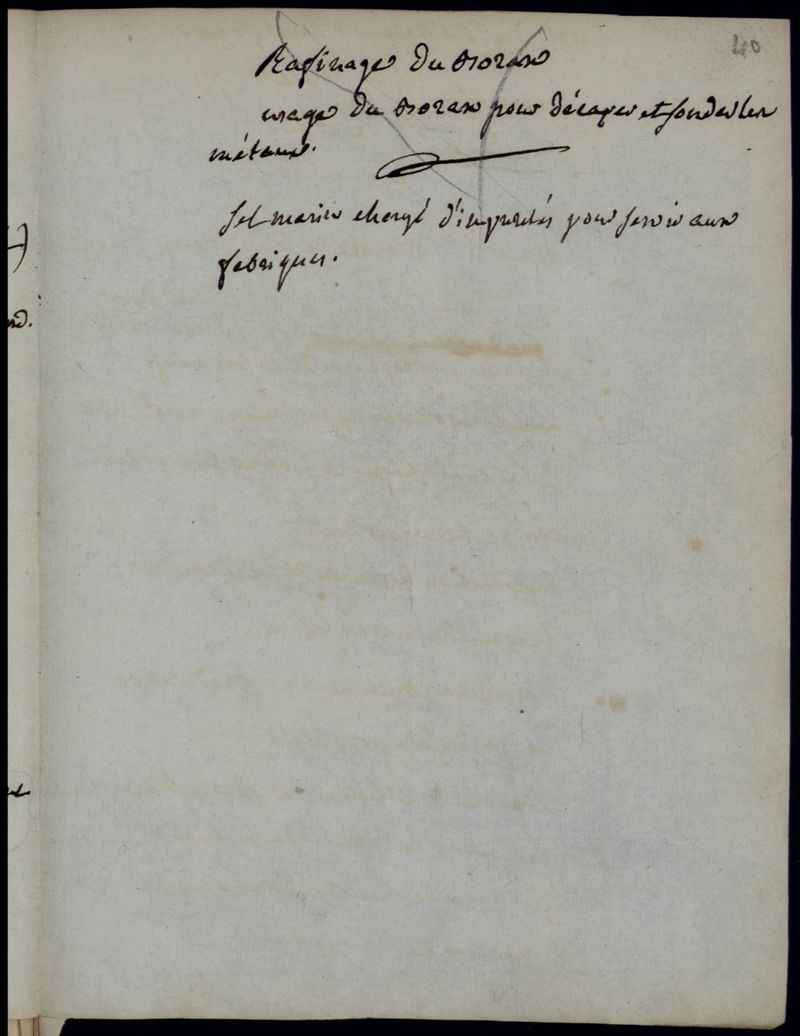 40
Rafinage du Borax
usage du Borax pour décaper et souder les
métaux.
Sel marin chargé d'impuretés pour servir aux
fabriques.